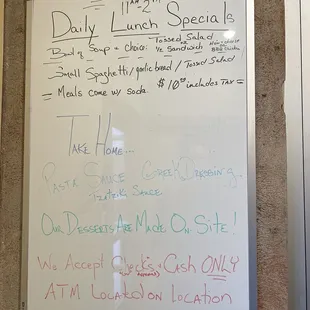 11AM-2PM
Daily Lunch Specials
Bowl of Soup + choice: Tossed Salad
or
1/2 Sandwich
Small Spaghetti/garlic bread/Tossed Salad
= Meals come w/ soda $10 includes TAX =
Take Home...
Pasta Sauce Greek Dressing..
Tzatziki Sauce
Our Desserts Are Made On-Site!
We Accept Checks + Cash ONLY
ATM Located on Location